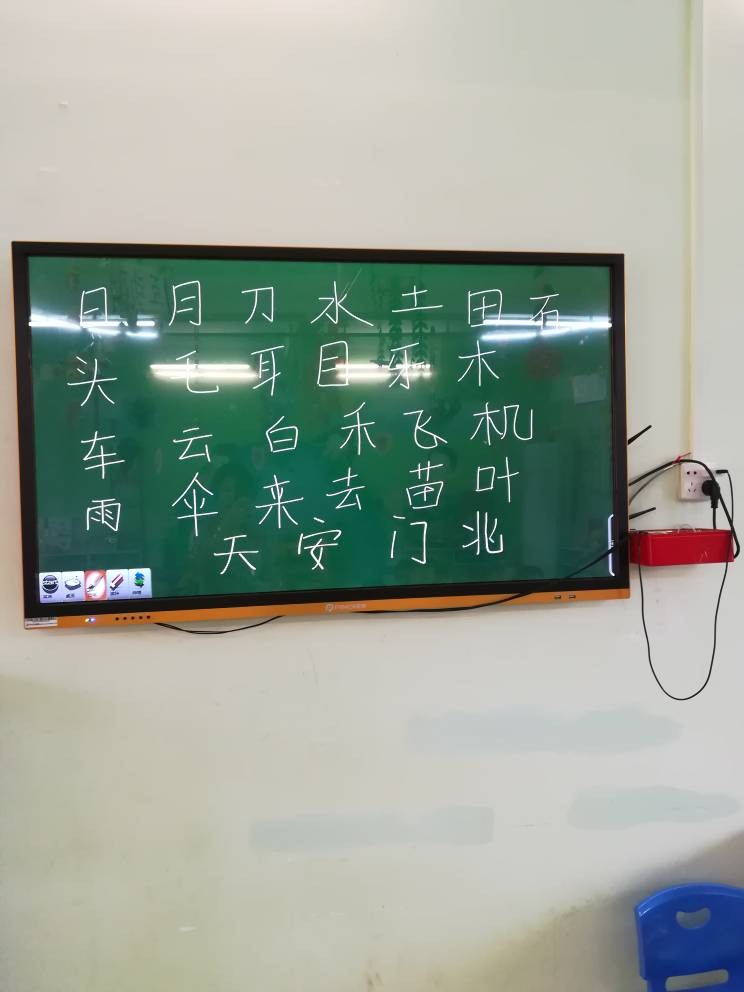 日 月 刀 水 土 田 石
头 毛 耳 目 牙 木
车 云 白 禾 飞 机
雨 伞 来 去 苗 叶
天 安 门 北